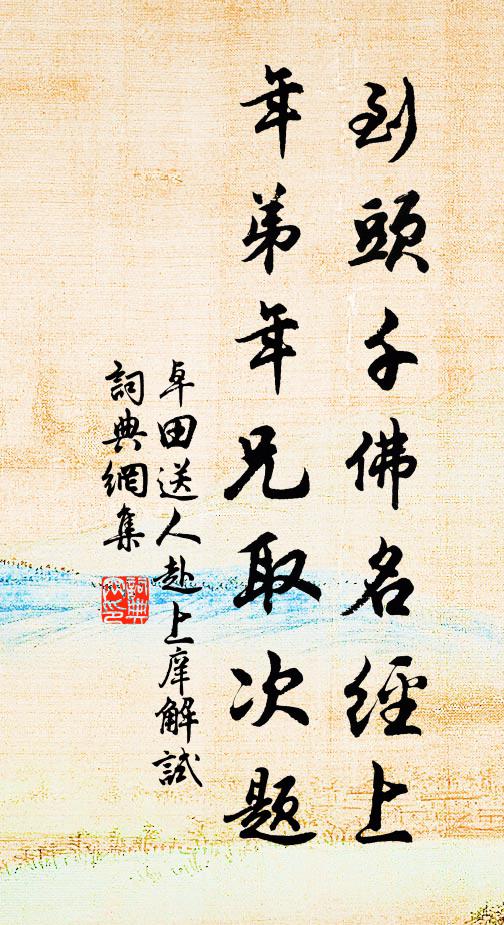 到頭千佛名經上
年弟年兄取次題
卓田送人赴上庠解試
詞典網集